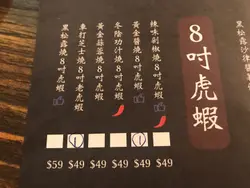 8吋虎蝦
辣味剁椒燒8吋虎蝦
黃金醬燒8吋虎蝦
冬陰功汁燒8吋虎蝦
黃金蒜蓉燒8吋虎蝦
車打芝士燒8吋老虎蝦
黑松露燒8吋虎蝦
$59 $49 $49 $49 $49 $49